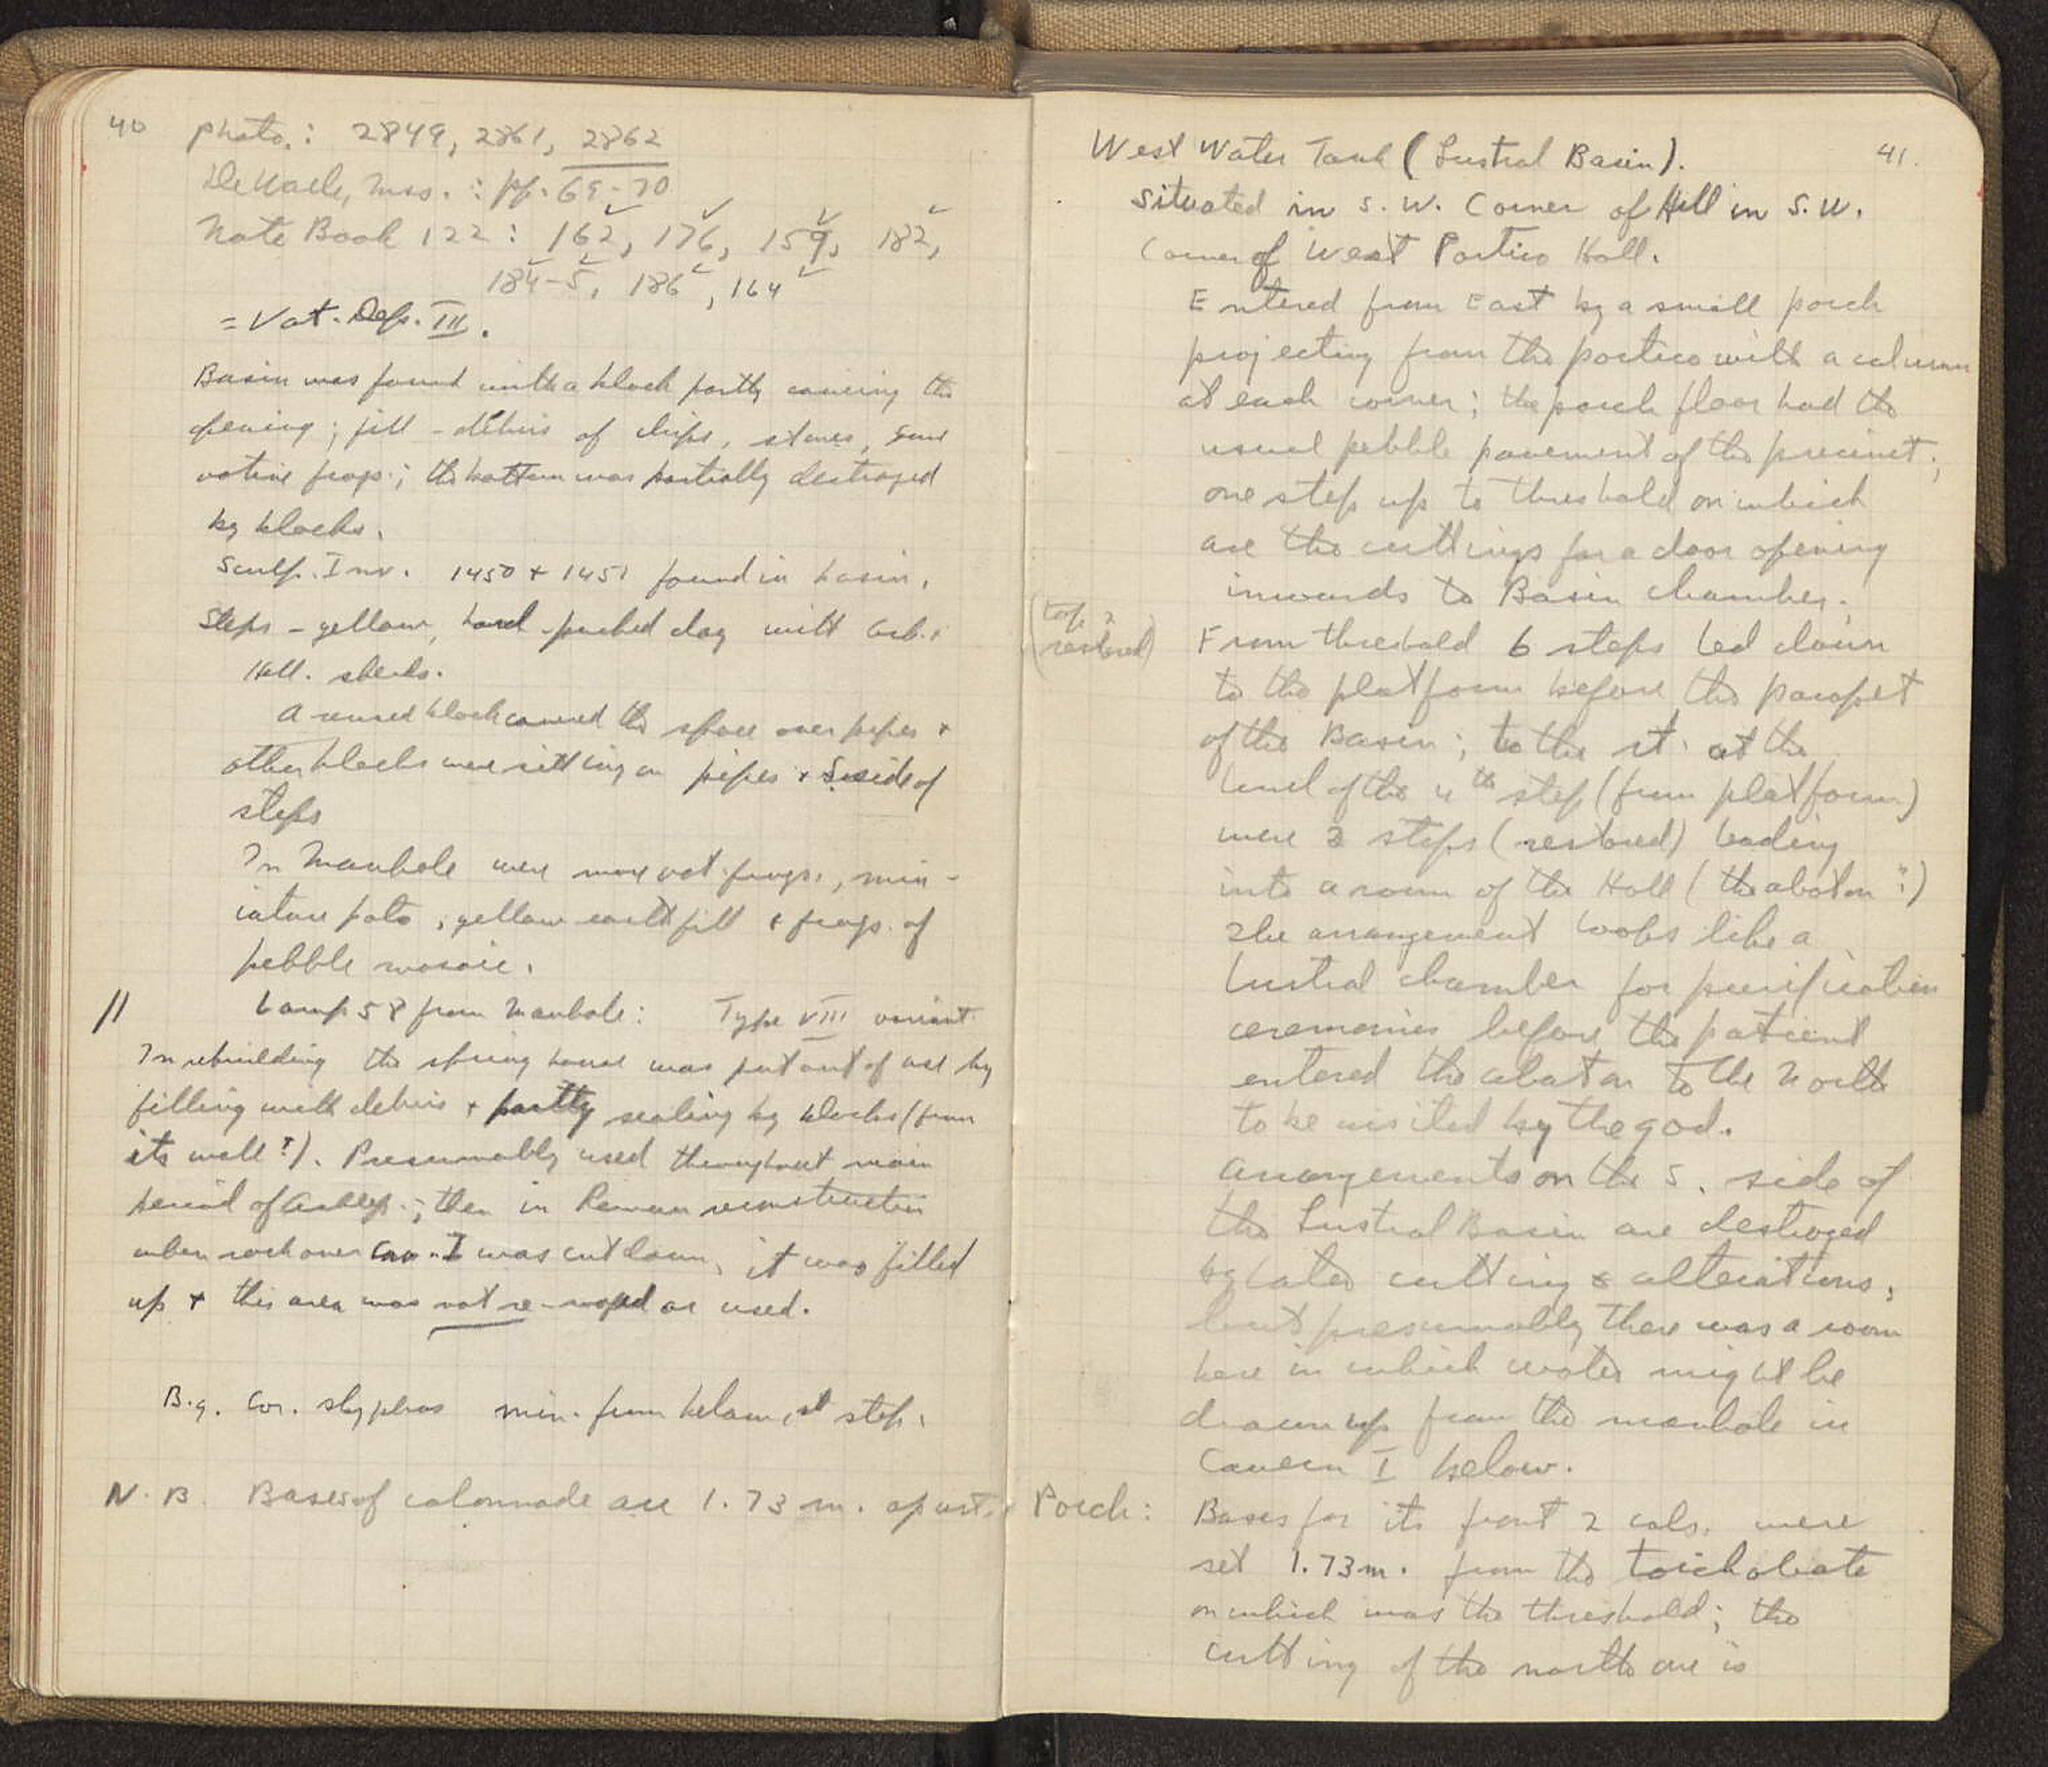 40
Photo.: 2849, 2861, 2862
De Waele, mss. : pp. 69-70
Note Book 122 : 162, 176, 159, 182,
184-5, 186, 164
= Vot. Dep. III.
Basin was found with a block partly covering the
opening; fill - debris of chips, stones, some
votive frags.; the bottom was partially destroyed
by blocks.
Sculp. Inv. 1450 + 1451 found in basin.
Steps - yellow, hard-packed clay with
Hell. sherds.
A reused block covered the space over pipes +
other blocks were sitting on pipes + S. side of
steps
In Manhole were more vot. frags., min-
iature pots, yellow earth fill + frags. of
pebble mosaic.
// Lamp 58 from Manhole: Type VIII variant
In rebuilding the spring house was put out of use by
filling with debris + partly sealing by blocks (from
its wall?). Presumably used throughout main
period of Asklep.; then in Roman reconstruction
when rock over Cav. I was cut down, it was filled
up + this area was not re-roofed or used.
B.g. Cor. skyphos min. from below, st step.
N.B. Bases of colonnade are 1.73 m. apart.
41.
West Water Tank (Lustral Basin).
Situated in S.W. Corner of Hill in S.W.
Corner of West Portico Hall.
Entered from East by a small porch
projecting from the portico with a column
at each corner; the porch floor had the
usual pebble pavement of the precinct;
one step up to threshold on which
are the cuttings for a door opening
inwards to Basin chamber.
(top 2
restored)
From threshold 6 steps led down
to the platform before the parapet
of the Basin; to the rt. at the
level of the 4th step (from platform)
were 3 steps (restored) leading
into a room of the Hall (the abaton?)
The arrangement looks like a
Lustral chamber for purification
ceremonies before the patient
entered the abaton to the North
to be visited by the god.
Arrangements on the S. side of
the Lustral Basin are destroyed
by later cutting & alterations,
but presumably there was a room
here in which water might be
drawn up from the manhole in
Cavern I below.
Porch: Bases for its front 2 cols. were
set 1.73 m. from the toichobate
on which was the threshold; the
cutting of the north one is